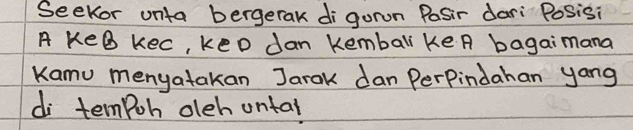 Seekor unta bergerak di gurun Pasir dari Posisi
A KeB kec, keD dan kembali KeA bagaimana
Kamu menyatakan Jarak dan Perpindahan yang
di temPoh oleh unta!